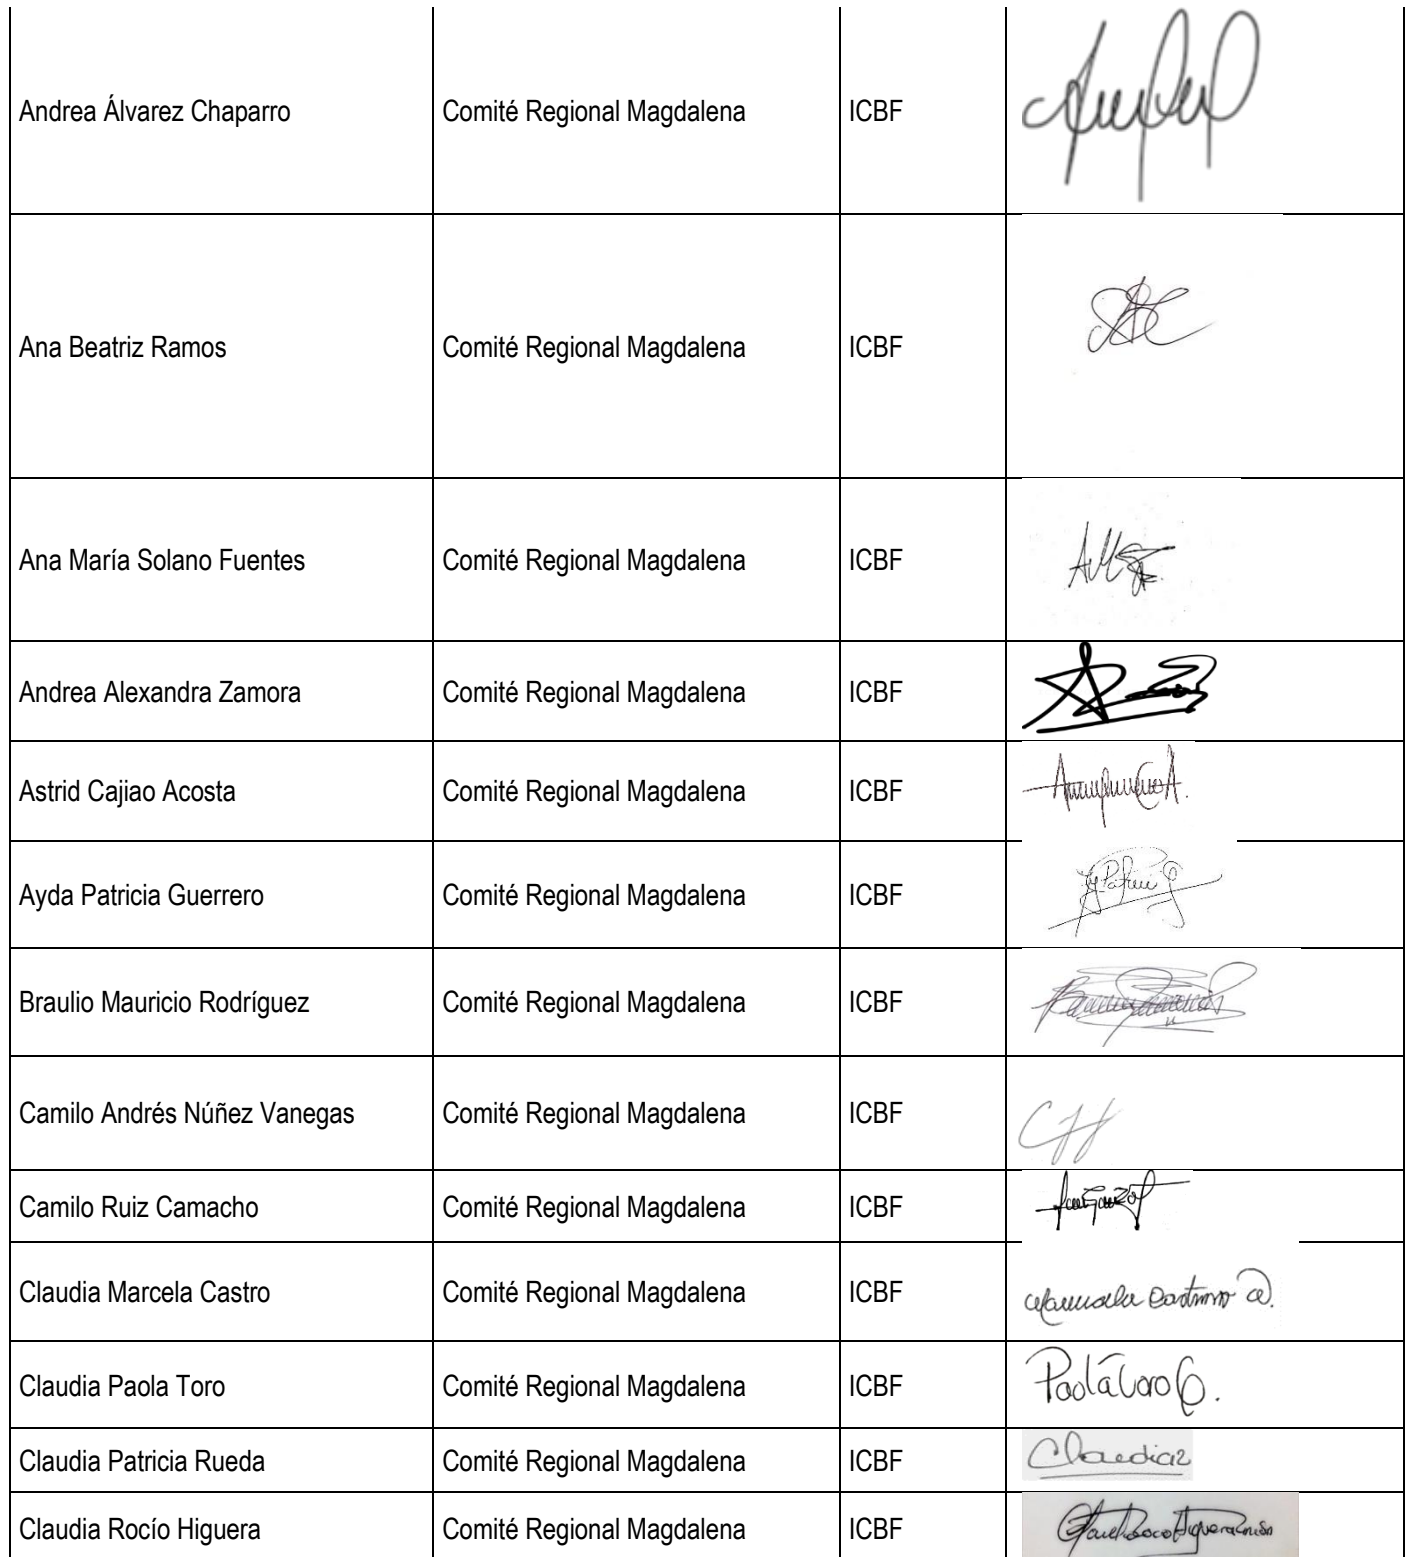 Andrea Álvarez Chaparro Comité Regional Magdalena ICBF
Ana Beatriz Ramos Comité Regional Magdalena ICBF
Ana María Solano Fuentes Comité Regional Magdalena ICBF
Andrea Alexandra Zamora Comité Regional Magdalena ICBF
Astrid Cajiao Acosta Comité Regional Magdalena ICBF
Ayda Patricia Guerrero Comité Regional Magdalena ICBF
Braulio Mauricio Rodríguez Comité Regional Magdalena ICBF
Camilo Andrés Núñez Vanegas Comité Regional Magdalena ICBF
Camilo Ruiz Camacho Comité Regional Magdalena ICBF
Claudia Marcela Castro Comité Regional Magdalena ICBF
Claudia Paola Toro Comité Regional Magdalena ICBF
Claudia Patricia Rueda Comité Regional Magdalena ICBF
Claudia Rocío Higuera Comité Regional Magdalena ICBF